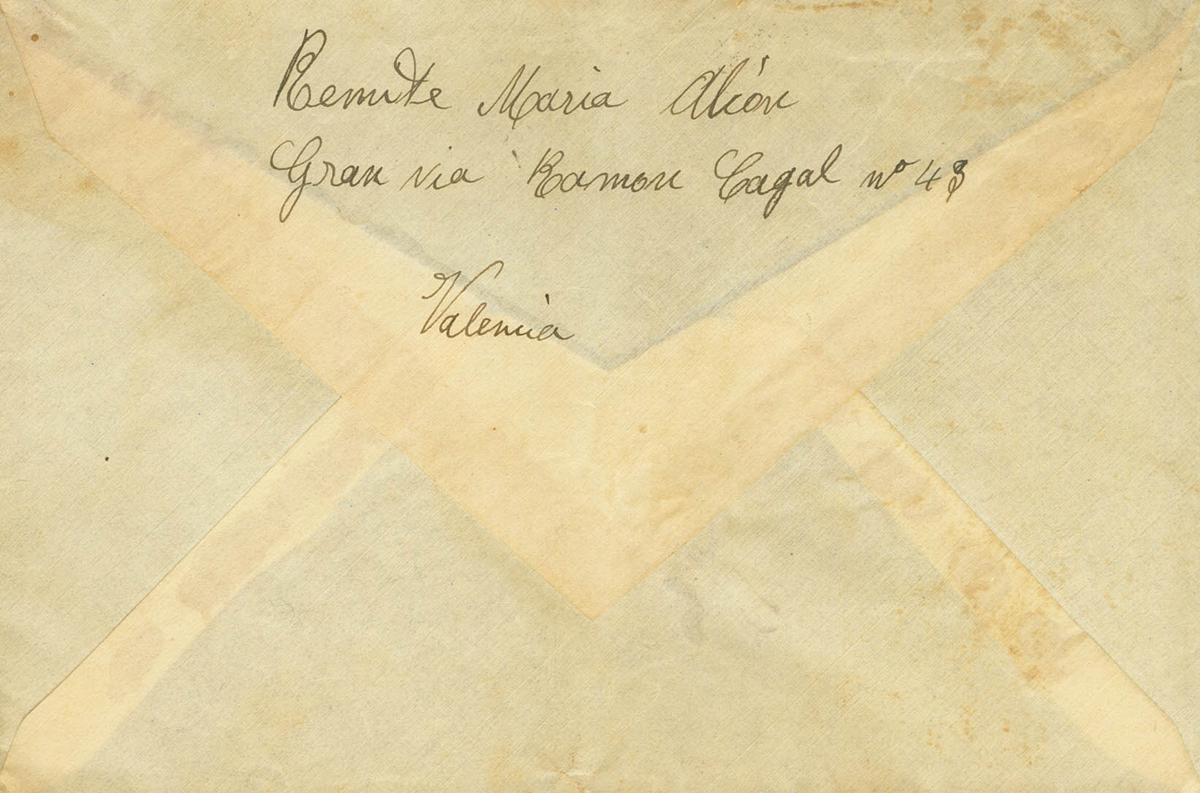 Remite Maria Alión
Gran via Ramon Cagal nº 43
Valencia